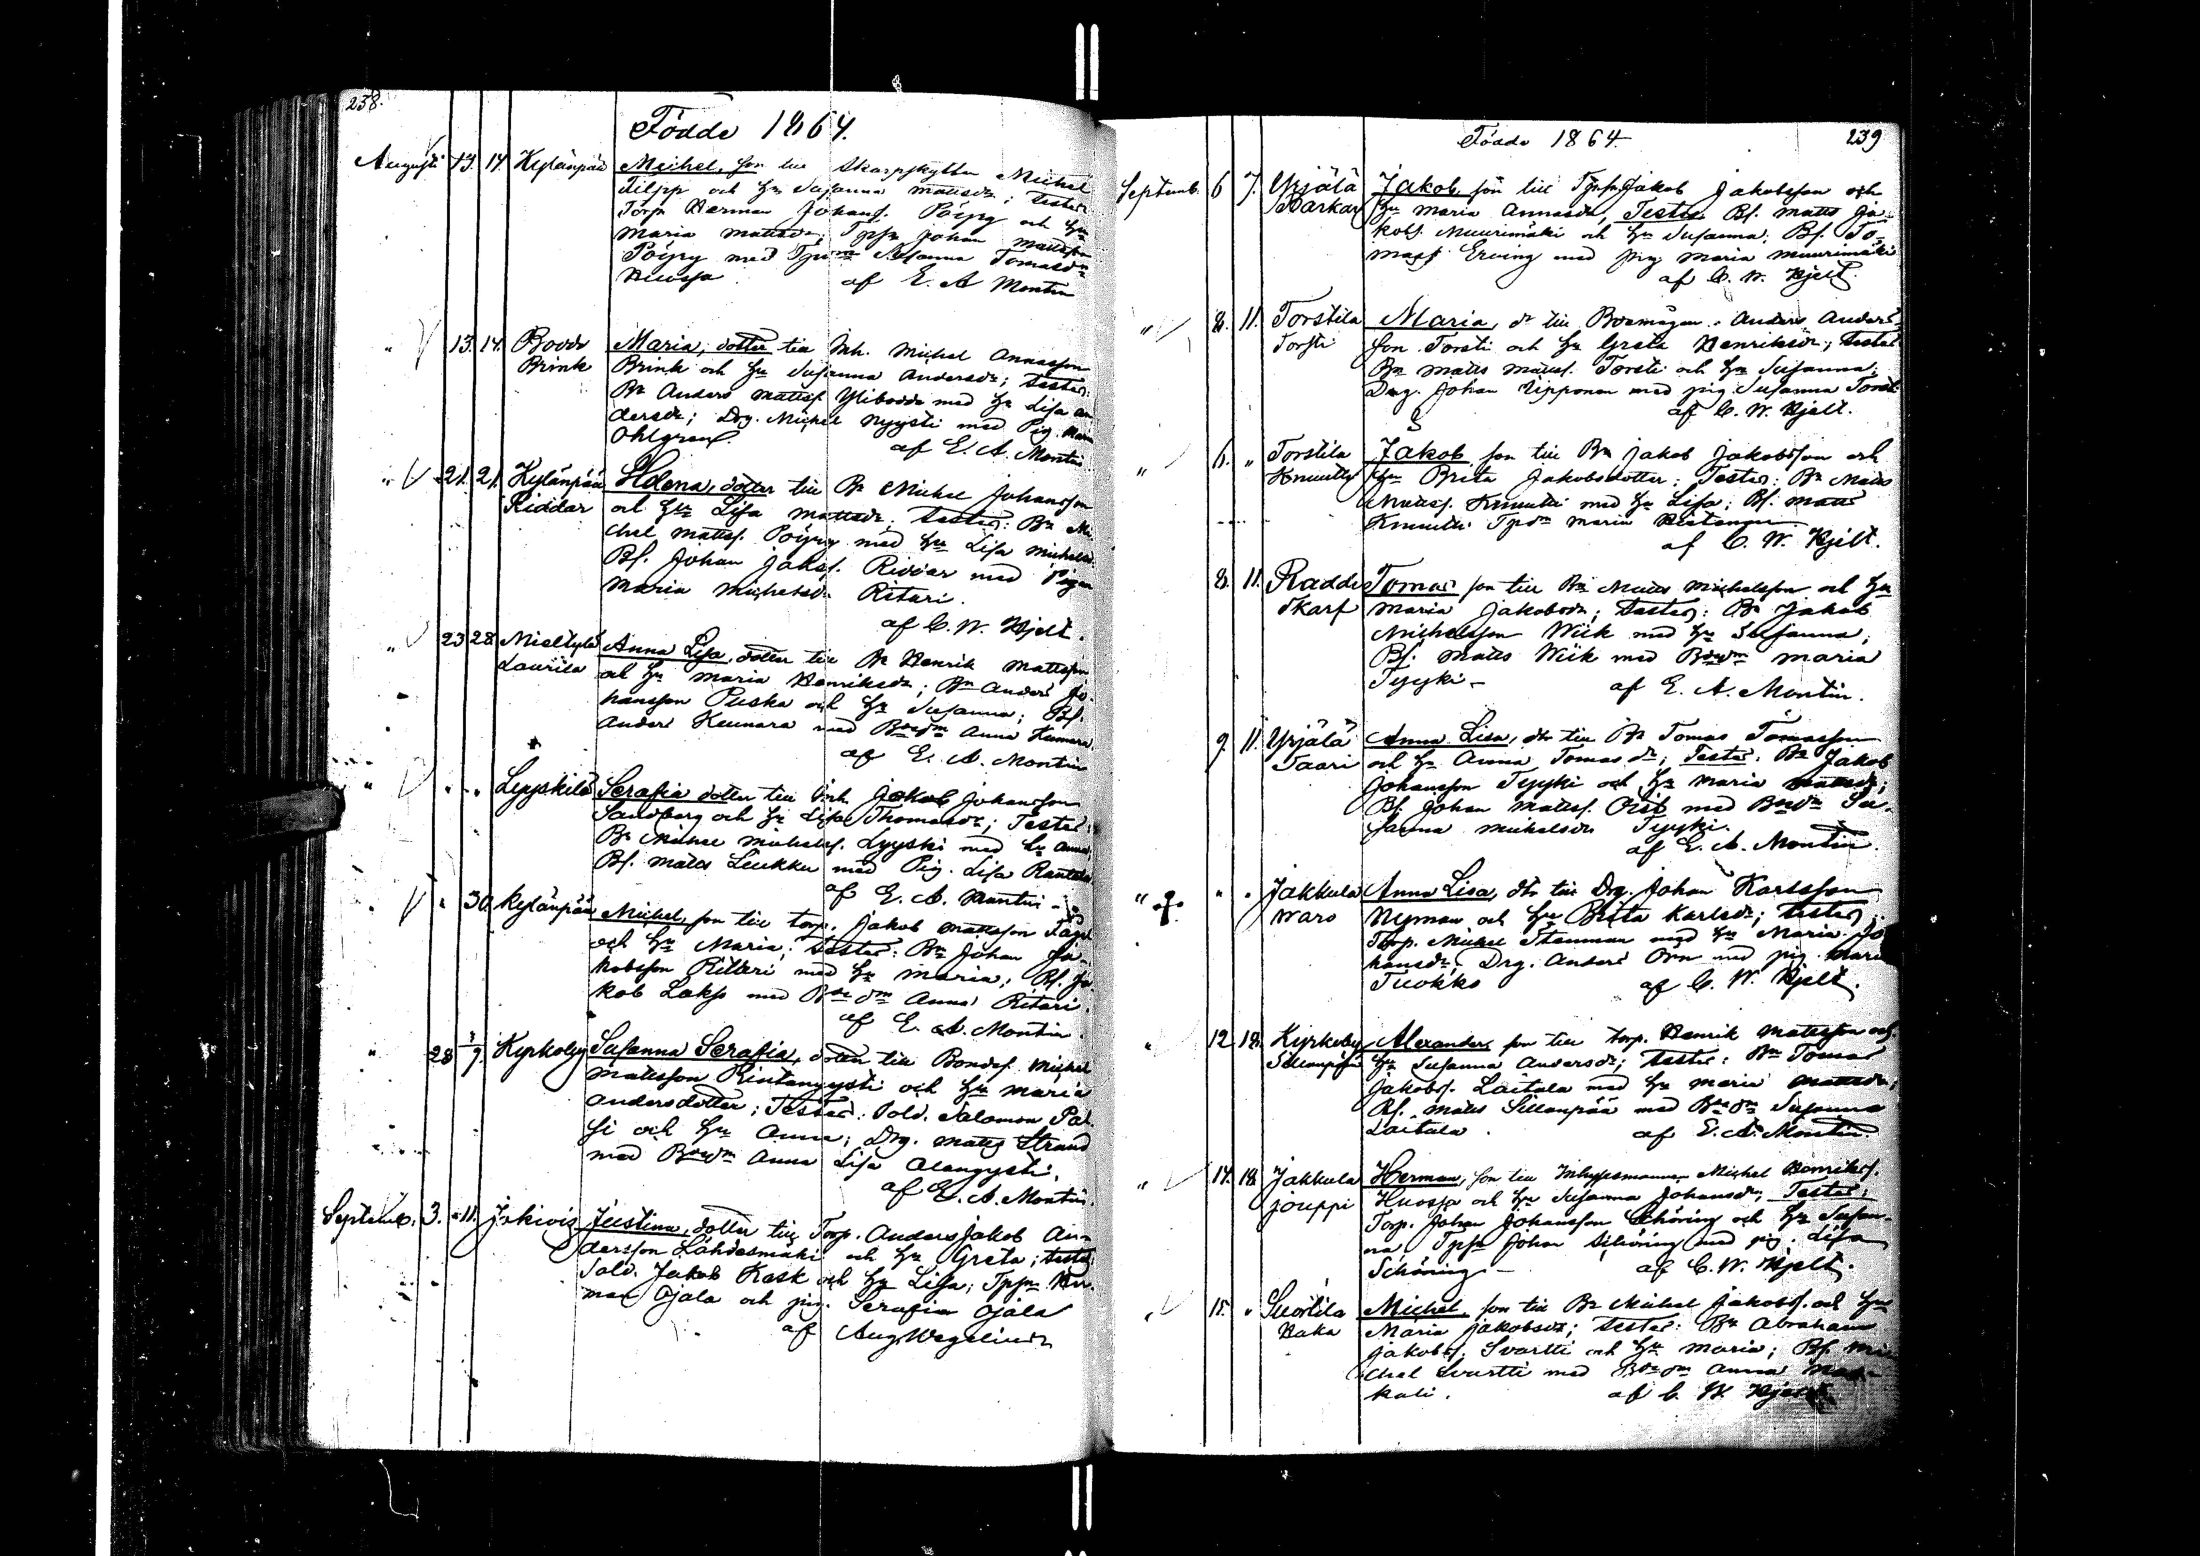 238.
Födde 1864.
Augusti 13. 14. Kylänpää Michel, son till Skarpskytten Michel
Filpp och hu Susanna Mattsdr; Testes
Torp Herman Johans. Pöyry och hu
Maria Mattsdr; Tpsn Johan Mattsson
Pöyry med Tpdm Susanna Tomasdr
Huossa af E. A Montin
" 13. 14. Bodde Maria, dotter till Inh. Michel Annasson
Brink Brink och hu Susanna Andersdr; Testes:
Bn Anders Mattss. Ylibodde med hu Lisa An
dersdr; Drg. Michel Nyysti med Pig. Maria
Ohlgren. af E. A. Montin
" 21. 21. Kylänpää Helena, dotter till Bn Michel Johansson
Riddar och hu Lisa Mattsdr; Testes: Bn Mi
chel Mattss. Pöyry med hu Lisa Michelsd.
Bs. Johan Jakss. Riddar med Pigan
Maria Michelsdr Ritari.
af C. W. Hjelt.
" 23 28 Mieltylä Anna Lisa, dotter till Bn Henrik Mattsson
Laurila och hu Maria Henriksdr; Bn Anders Jo
hansson Puska och hu Susanna; Bs.
Anders Kunnara med Bdedm Anna Kunnara
af E. A. Montin
" " " Lyyskilä Serafia dotter till Inh. Jakob Johansson
Sandberg och hu Lisa Thomasdr; Testes:
Bn Michel Michelss. Lyyski med hu Anna,
Bs. Matts Leukku med Pig. Lisa Rantala
af E. A. Montin
" " 30 Kylänpää Michel, son till torp. Jakob Mattsson Fågel
och hu Maria; Testes: Bn Johan Ja-
kobsson Ritteri med hu Maria; Bs. Ja
kob Laks med Bdedm Anna Ritari.
af E. A. Montin.
" 28 1/9. Kyrkoby Susanna Serafia, dotter till Bondes. Michel
Mattsson Rintanyysti och hu Maria
Andersdotter; Testes: Sold. Salomon Pal
si och hu Anna; Drg. Matts Strand
med Bdedm Anna Lisa Alanyysti.
af E. A. Montin.
Septemb. 3. 11. Jokivig Justina, dotter till Torp. Anders Jakob An-
dersson Lähdesmäki och hu Greta; Testes
Sold. Jakob Kask och hu Lisa; Tpsn Her
man Ojala och pig. Serafia Ojala
af Aug Wegelius
Födde 1864. 239
Septemb. 6 7. Yrjälä Jakob, son till Tpsn Jakob Jakobsson och
Barkar hu Maria Annasdr, Testes Bs. Matts Ja-
kobs. Muurimäki och hu Susanna; Bs. To-
mass Erving med pig Maria Muurimäki
af C. W. Hjelt.
" 8. 11. Torstila Maria, dr till Bonmågen Anders Anders
Torsti son Torsti och hu Greta Henriksdr; Testes
Bn Matts Mattss. Torsti och hu Susanna;
Drg. Johan Nipponen med pig. Susanna Torsti
af C. W. Hjelt.
" 6. " Torstila Jakob son till Bn Jakob Jakobsson och
Knuuttij hu Brita Jakobsdotter; Testes: Bn Matts
Mattss. Knuutti med hu Lisa; Bs. Matts
Knuutti Tpdm Maria
af C. W. Hjelt.
8. 11. Radde Tomas son till Bn Matts Michelsson och hu
Skarf Maria Jakobsdr; Testes: Bn Jakob
Michelsson Wiik med hu Susanna;
Bs. Matts Wiik med Bdedm Maria
Tyyki. af E. A. Montin.
9. 11. Yrjälä Anna Lisa, dtr till Bn Tomas Tomasson
Taari och hu Anna Tomasdr; Testes: Bn Jakob
Johansson Tyyki och hu Maria Mattsdr;
Bs. Johan Mattss. Orre med Bdedm Su-
sanna Michelsdr Tyyki.
af E. A. Montin.
" " " Jakkula Anna Lisa, dtr till Drg. Johan Karlsson
Waro Nyman och hu Brita Karlsdr; Testes;
Torp. Michel Stenman med hu Maria Jo
hansdr; Drg. Anders Orn med pig. Maria
Tuokko af C. W. Hjelt.
" 12. 18. Kyrkoby Alexander son till torp. Henrik Mattsson och
Sillanpää hu Susanna Andersdr; Testes: Bn Tomas
Jakobs. Laitala med hu Maria Mattsdr;
Bs. Matts Sillanpää med Bdedm Susanna
Laitala. af E. A. Montin.
" 14. 18. Jakkula Herman, son till Inhysesmannen Michel Henrikss.
Jouppi Huossa och hu Susanna Johansdr; Testes;
Torp. Johan Johansson Schöring och hu Susan-
na, Tpsn Johan Schöring med pig. Lisa
Schöring af C. W. Hjelt.
" 15. " Suotila Michel, son till Bn Michel Jakobss. och hu
Haka Maria Jakobsdr; Testes: Bn Abraham
Jakobs. Svartti och hu Maria; Bs. Mi
chel Svartti med Bdedm Anna Mas-
kali. af C. W. Hjelt.